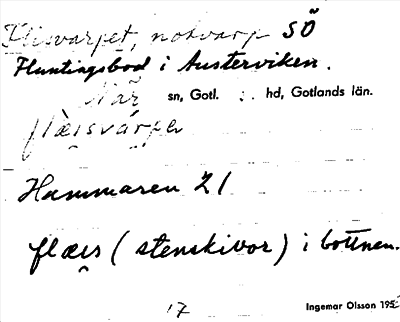 Flisvarpet, notvarp SÖ
Huntingsbod i Austerviken.
När sn, Gotl. hd, Gotlands län.
flæisvarpe
Hammaren 21
flæis (stenskivor) i bottnen.
17 Ingemar Olsson 195